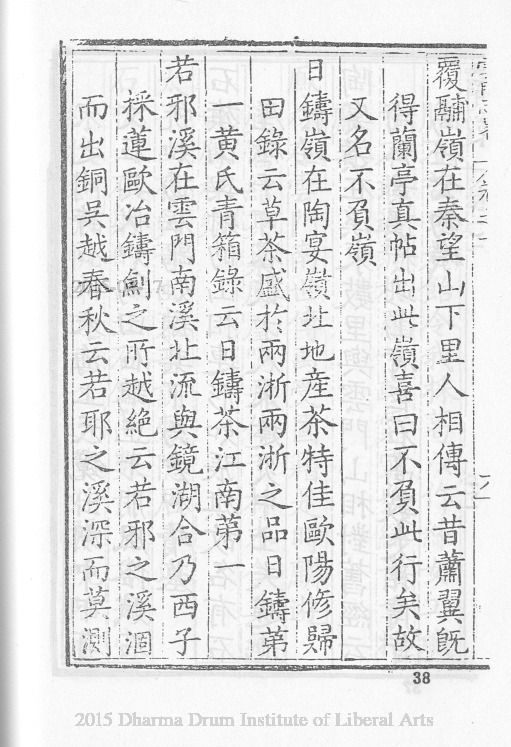 覆釃嶺在秦望山下里人相傳云昔蕭翼旣
得蘭亭真帖出此嶺喜曰不負此行矣故
又名不負嶺
日鑄嶺在陶宴嶺北地產茶特佳歐陽修歸
田錄云草茶盛於兩浙兩浙之品日鑄第
一黄氏青箱錄云日鑄茶江南第一
若邪溪在雲門南溪北流與鏡湖合乃西子
採蓮歐冶鑄劍之所越絕云若邪之溪涸
而出銅吳越春秋云若耶之溪深而莫測
38
2015 Dharma Drum Institute of Liberal Arts